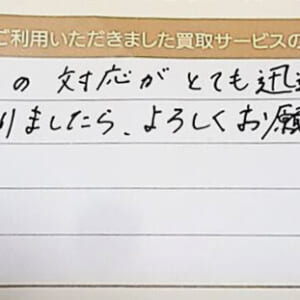 ご利用いただきました買取サービスの
の対応がとても迅
りましたら、よろしくお願